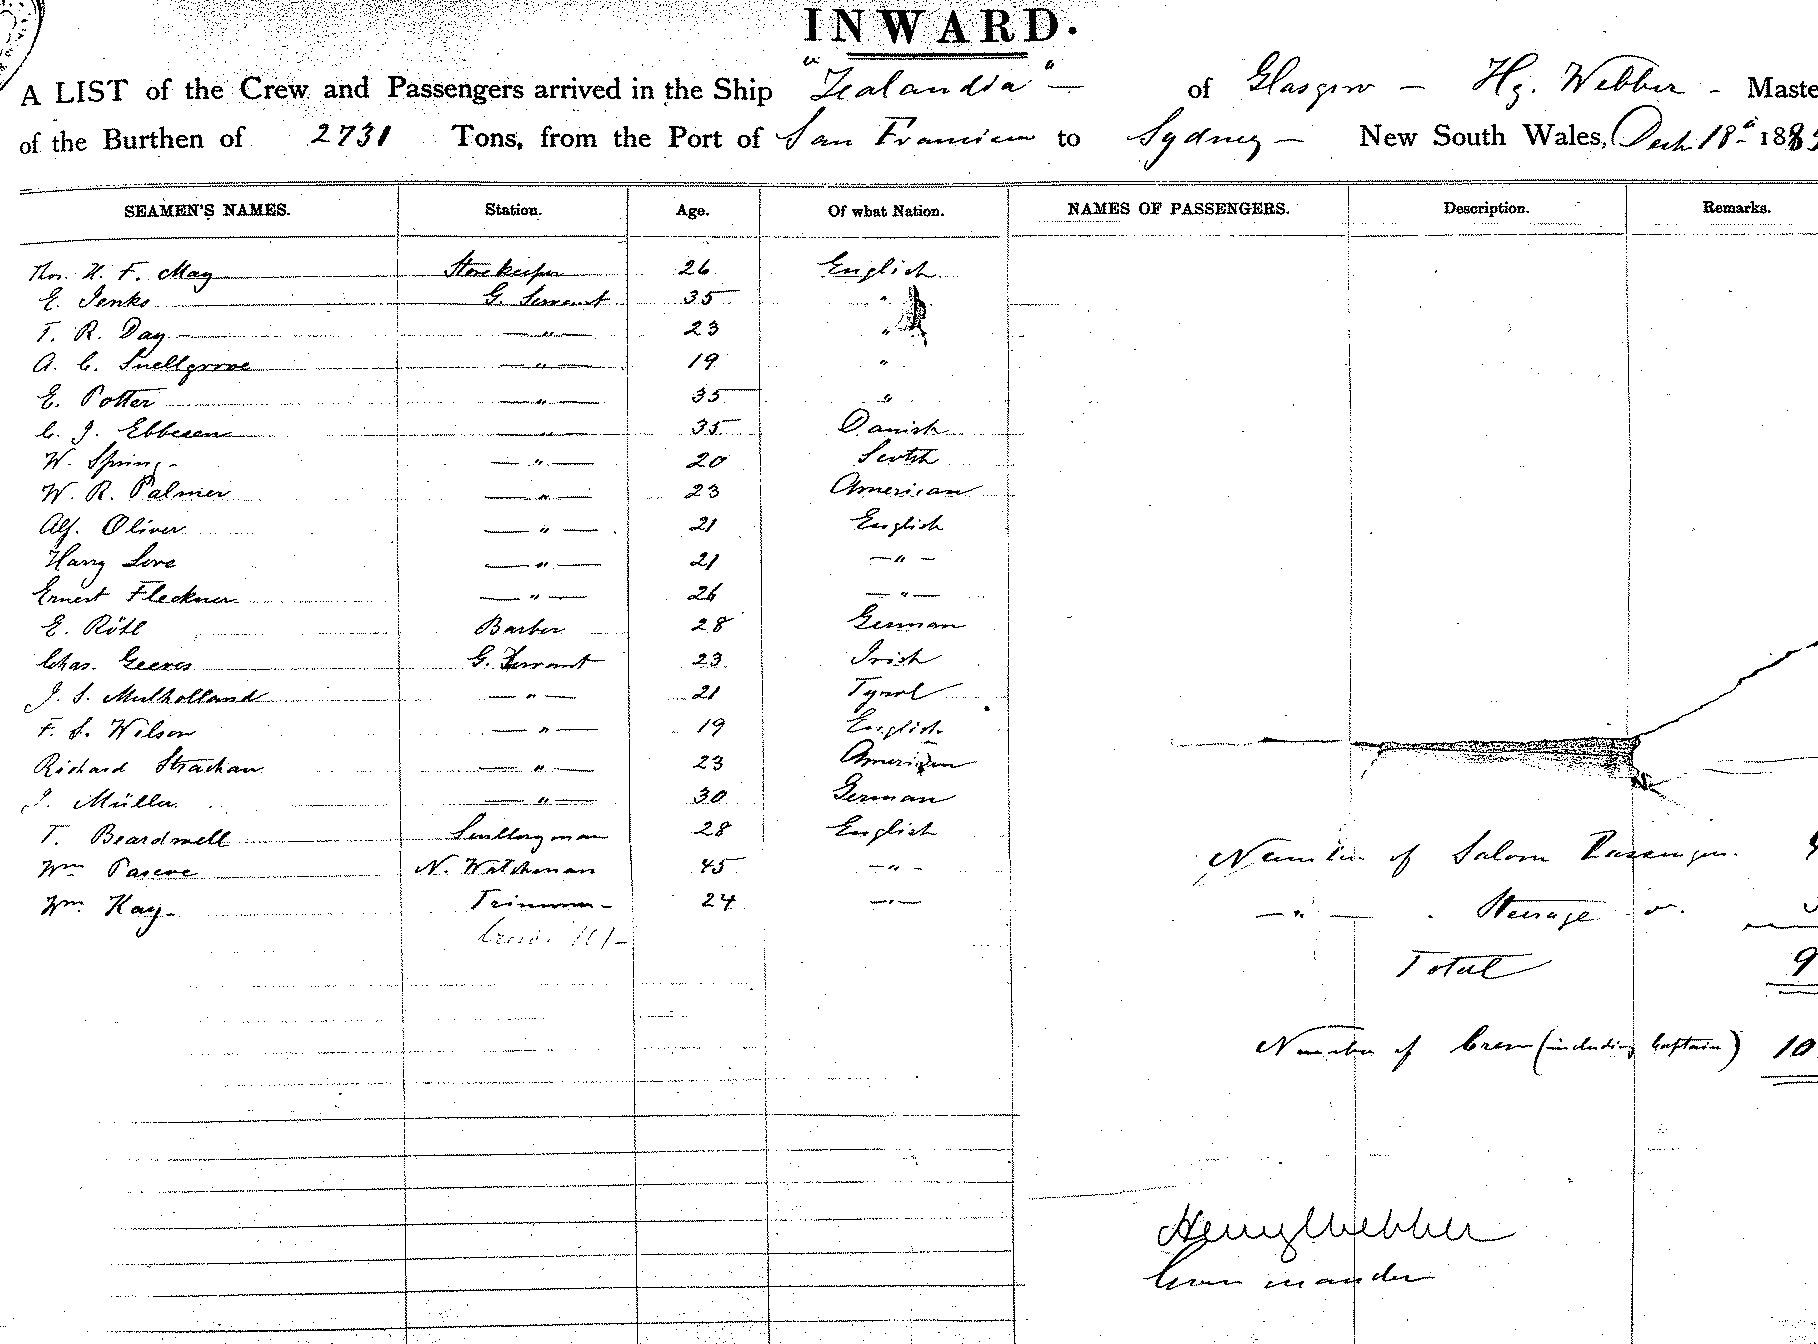 INWARD.
A LIST of the Crew and Passengers arrived in the Ship "Zealandia" — of Glasgow — Hy. Webber - Maste
of the Burthen of 2731 Tons, from the Port of San Francisco to Sydney — New South Wales, 18th 188
SEAMEN'S NAMES. Station. Age. Of what Nation. NAMES OF PASSENGERS. Description. Remarks.
Thos. H. F. May Storekeeper 26 English
E. Jenks G. Servant 35 "
T. R. Day —"— 23 "
A. C. Snellgrove —"— 19 "
E. Potter —"— 35 "
C. J. Ebbesen —"— 35 Danish
W. Spring —"— 20 Scotch
W. R. Palmer —"— 23 American
Alf. Oliver —"— 21 English
Harry Love —"— 21 —"—
Ernest Fleckner —"— 26 —"—
E. Rötl Barber 28 German
Chas. Geeves G. Servant 23 Irish
J. S. Mulholland —"— 21 Tyrol
F. S. Wilson —"— 19 English
Richard Strachan —"— 23 American
J. Müller —"— 30 German
T. Beardwell Scullery man 28 English
Wm Pascoe N. Watchman 45 —"—
Wm. Kay Trimmer 24 —"—
Number of Saloon Passengers
—"— Steerage
Total 9
Number of Crew (including Captain) 10
Henry Webber
Commander